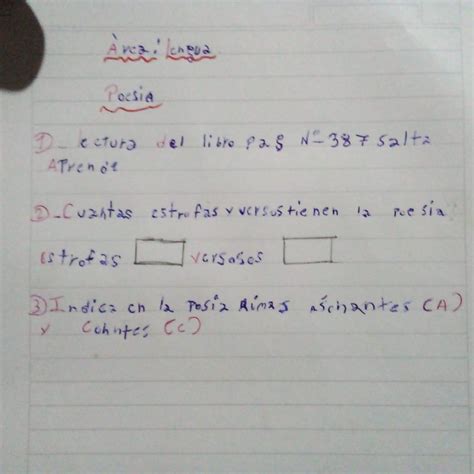 Àrea: Lengua
Poesia
1)_ Lectura del libro pag Nº- 387 Salta
APrende
2)_ Cuantas estrofas y versus tienen la poesia
estrofas versosos
3) Indica en la Posia Rimas
(A)
y (C)